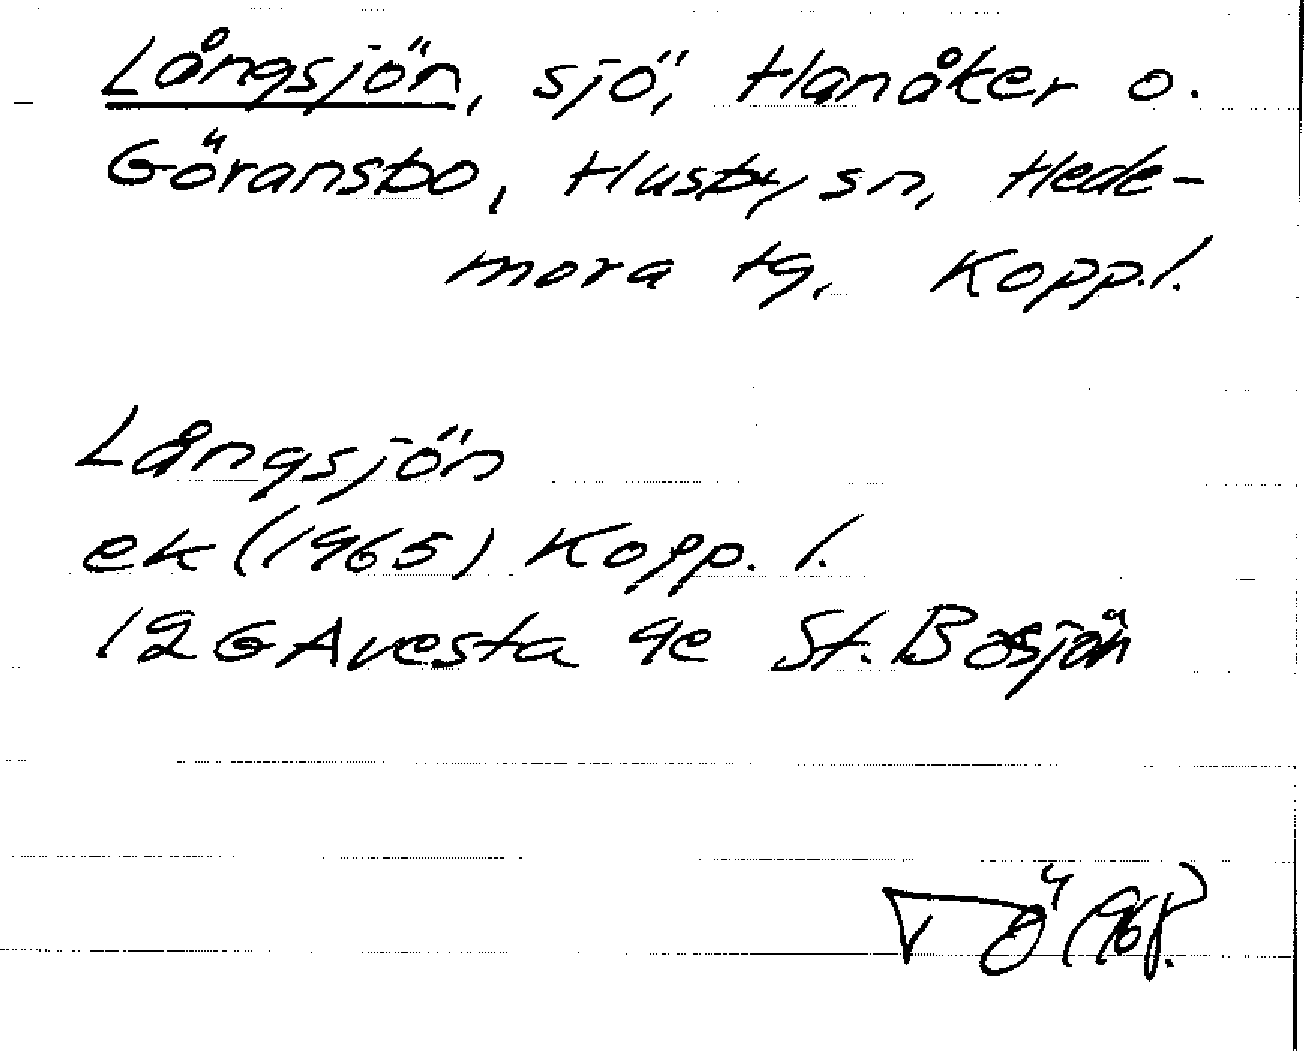 Långsjön, sjö, Hanåker o.
Göransbo, Husby sn, Hede-
mora tg, Kopp.l.
Långsjön
ek (1965) Kopp. l.
12G Avesta 9e St. Bosjön